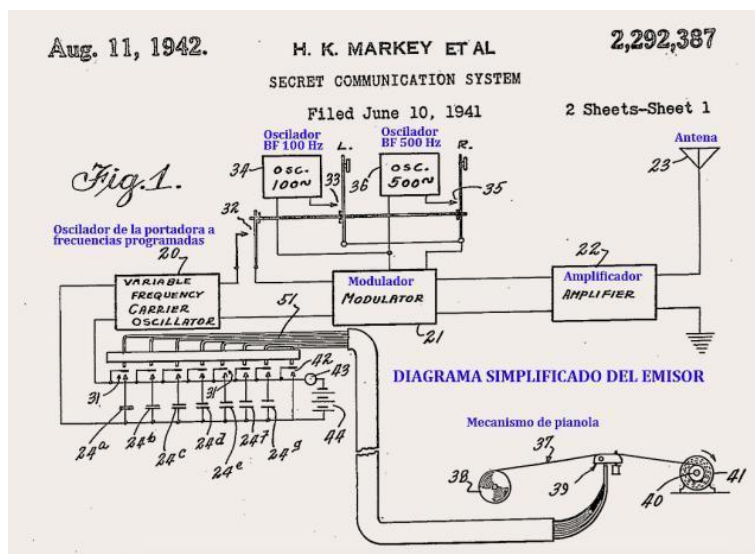 Aug. 11, 1942.
H. K. MARKEY ET AL
2,292,387
SECRET COMMUNICATION SYSTEM
Filed June 10, 1941
2 Sheets-Sheet 1
Fig. 1.
Oscilador
BF 100 Hz
L.
Oscilador
BF 500 Hz
R.
Antena
23
34
OSC.
100~
33
36
OSC.
500~
35
32
Oscilador de la portadora a
frecuencias programadas
20
VARIABLE
FREQUENCY
CARRIER
OSCILLATOR
Modulador
MODULATOR
21
22
Amplificador
AMPLIFIER
51
31
31
42
43
44
24a
24b
24c
24d
24e
24f
24g
DIAGRAMA SIMPLIFICADO DEL EMISOR
Mecanismo de pianola
37
38
39
40
41